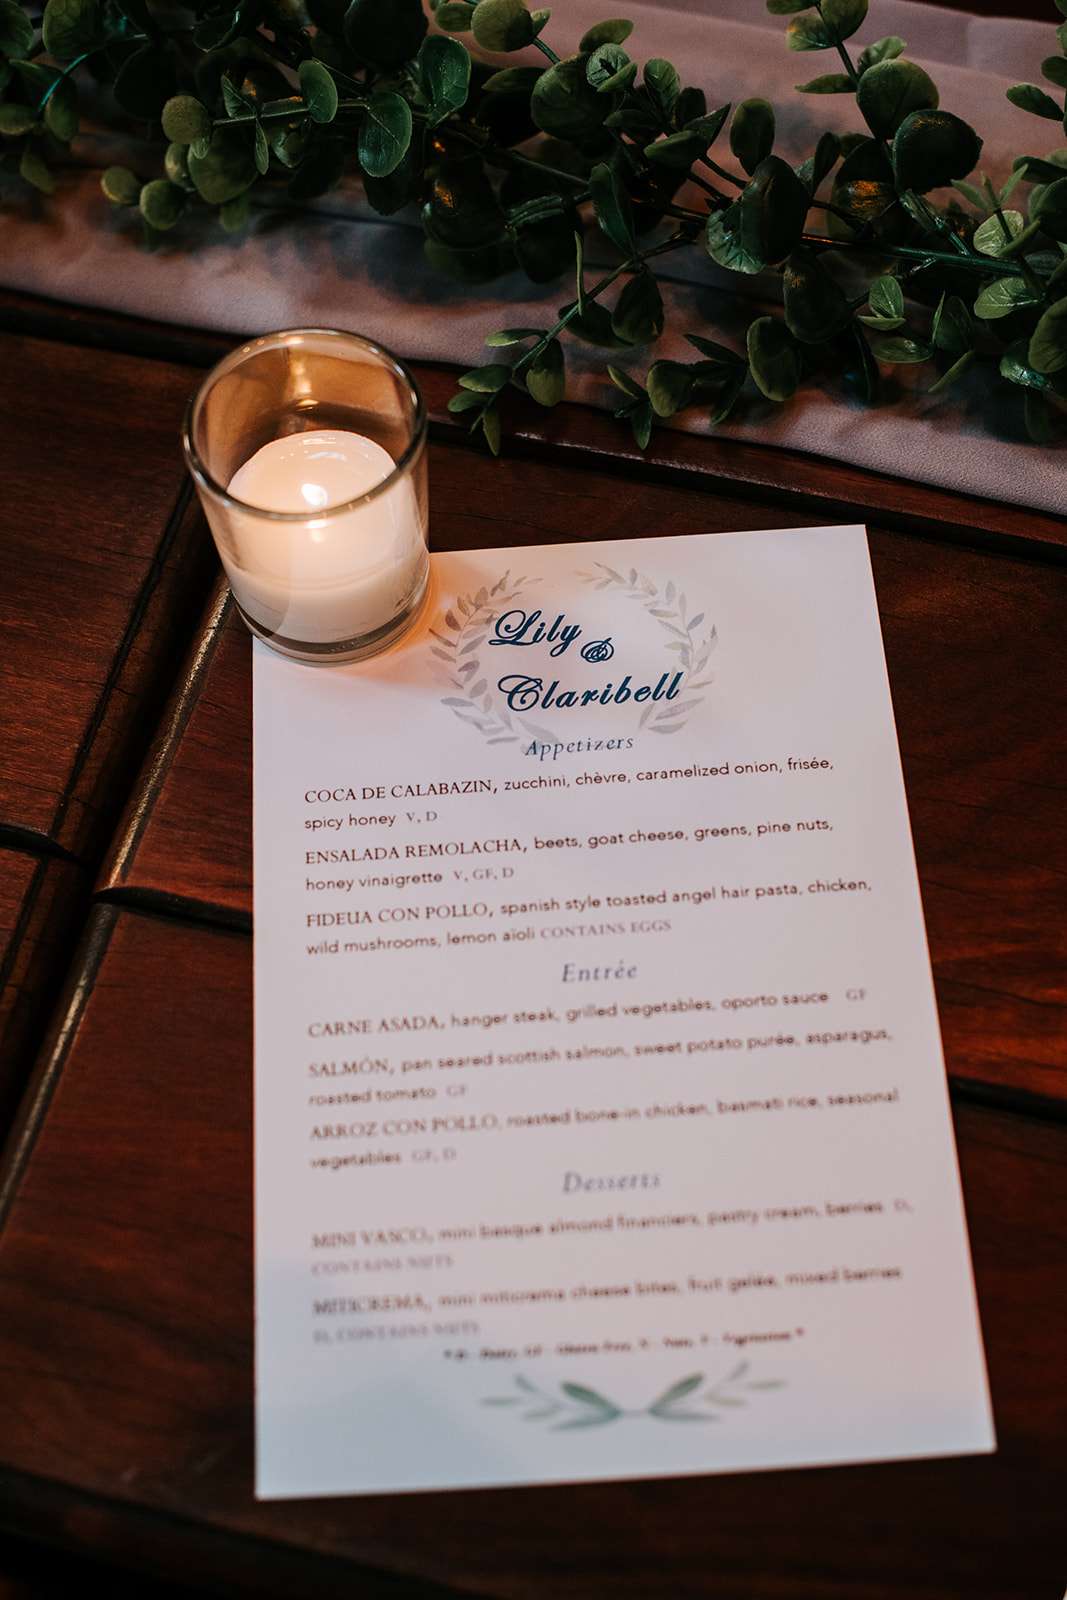 Lily
&
Claribell
Appetizers
COCA DE CALABAZIN, zucchini, chèvre, caramelized onion, frisée,
spicy honey V, D
ENSALADA REMOLACHA, beets, goat cheese, greens, pine nuts,
honey vinaigrette V, GF, D
FIDEUA CON POLLO, spanish style toasted angel hair pasta, chicken,
wild mushrooms, lemon aioli CONTAINS EGGS
Entrée
CARNE ASADA, hanger steak, grilled vegetables, oporto sauce GF
SALMÓN, pan seared scottish salmon, sweet potato purée, asparagus,
roasted tomato GF
ARROZ CON POLLO, roasted bone-in chicken, basmati rice, seasonal
vegetables GF, D
Desserts
MINI VASCO, mini basque almond financiers, pastry cream, berries D,
CONTAINS NUTS
MITICREMA, mini miticrema cheese bites, fruit gelée, mixed berries
D, CONTAINS NUTS